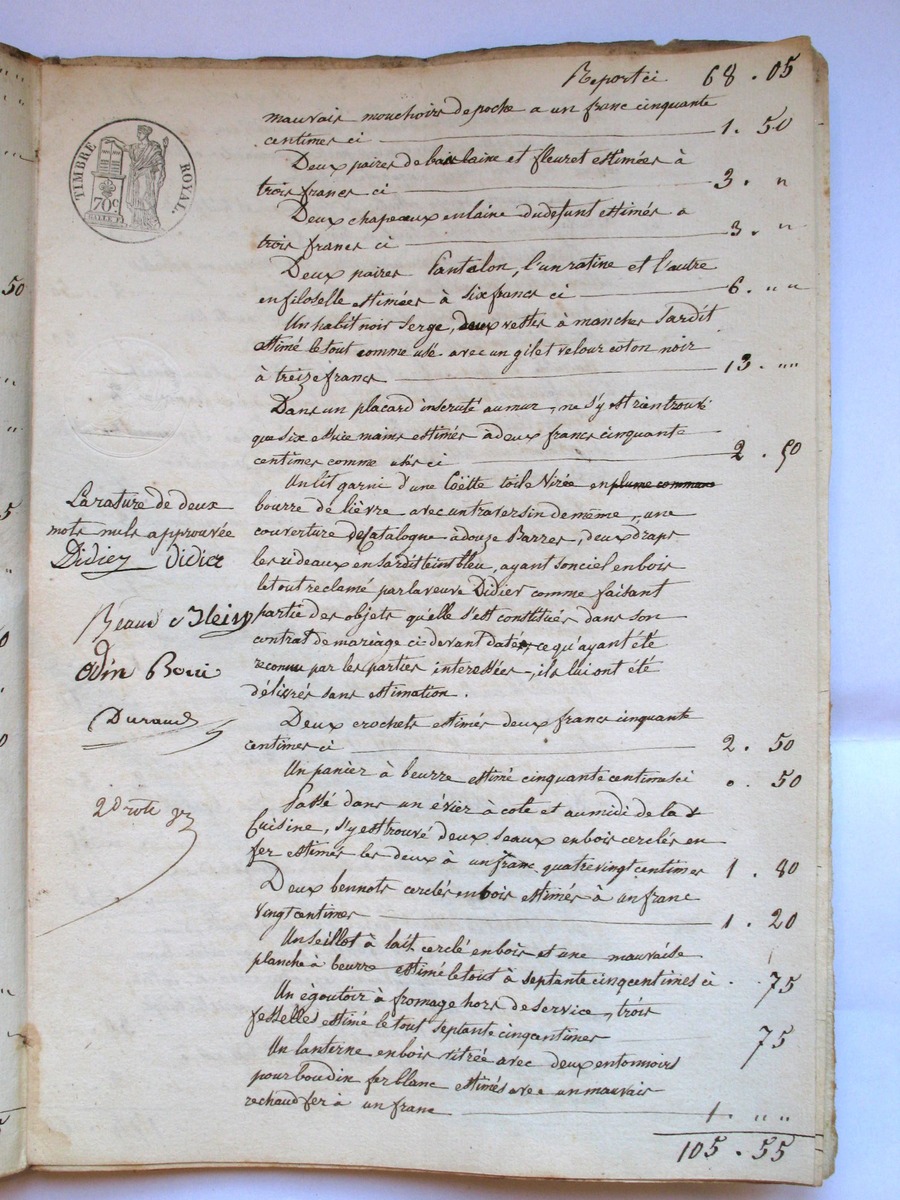 Report ci 68 . 05
mauvais mouchoirs de poche a un franc cinquante
centimes ci 1 . 50
Deux paires de bas laine et fleuret estimées à
trois francs ci 3 . "
Deux chapeaux en laine du defunt estimés a
trois francs ci 3 . "
Deux paires Pantalon, l'un ratine et l'autre
en filoselle estimées à six francs ci 6 . " "
Un habit noir serge, deux vestes à manches sardit
estimé le tout comme usé avec un gilet velour coton noir
à treize francs 13 . " "
Dans un placard inscruté au mur, ne s'y est rien trouvé
que six essuie mains estimés à deux francs cinquante
centimes comme usés ci 2 . 50
Un lit garni d'une Coëtte toile Virée en plume commune
bourre de lièvre avec un traversin de même, une
couverture de Catalogne à douze Barres, deux draps
les rideaux en sardit teint bleu, ayant son ciel en bois
le tout reclamé par la veuve Didier comme faisant
partie des objets qu'elle s'est constitués dans son
contrat de mariage ci-devant daté, ce qu'ayant été
reconnu par les parties interessées, ils lui ont été
délivrés sans estimation.
Deux crochets estimés deux francs cinquante
centimes ci 2 . 50
Un panier à beurre estimé cinquante centimes ci 0 . 50
Passé dans un évier à cote et au midi de la
Cuisine, s'y est trouvé deux seaux en bois cerclés en
fer estimés les deux à un franc quatre vingt centimes 1 . 80
Deux bennots cerclés en bois estimés à un franc
vingt centimes 1 . 20
Un seillot à lait cerclé en bois et une mauvaise
planche à beurre estimé le tout à septante cinq centimes ci . 75
Un égoutoir à fromage hors de service, trois
fesselles estimé le tout septante cinq centimes 75
Un lanterne en bois vitrée avec deux entonnoirs
pour boudin fer blanc estimés avec un mauvais
rechaud fer à un franc 1 . " "
105 . 55
TIMBRE ROYAL.
70c
La rature de deux
mots nuls approuvée
Didiez Didier
Odin
Durand
50
5